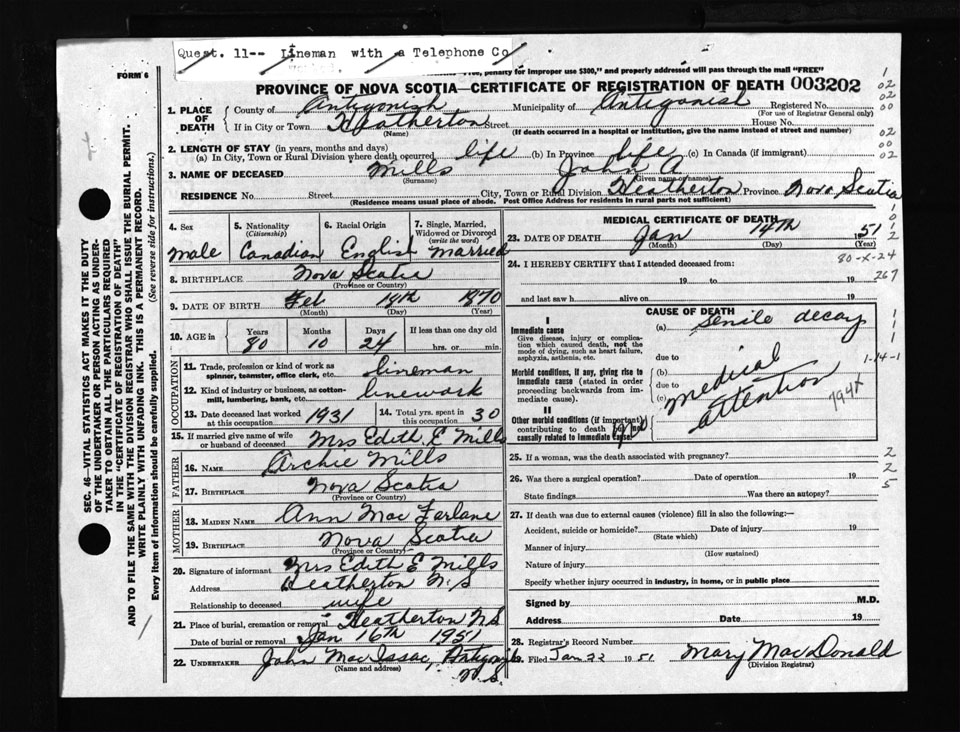 Quest. 11-- Lineman with a Telephone Co
FORM 6
Free, penalty for improper use $300," and properly addressed will pass through the mail "FREE"
PROVINCE OF NOVA SCOTIA—CERTIFICATE OF REGISTRATION OF DEATH 003202
1. PLACE OF DEATH
County of Antigonish Municipality of Antigonish Registered No.
(For use of Registrar General only)
If in City or Town Heatherton Street House No.
(Name) (If death occurred in a hospital or institution, give the name instead of street and number)
2. LENGTH OF STAY (in years, months and days)
(a) In City, Town or Rural Division where death occurred life (b) In Province life (c) In Canada (if immigrant)
3. NAME OF DECEASED Mills John A.
(Surname) (Given name or names)
RESIDENCE No. Street City, Town or Rural Division Heatherton Province Nova Scotia
(Residence means usual place of abode. Post Office Address for residents in rural parts not sufficient)
4. Sex male
5. Nationality (Citizenship) Canadian
6. Racial Origin English
7. Single, Married, Widowed or Divorced (write the word) Married
8. BIRTHPLACE Nova Scotia
(Province or Country)
9. DATE OF BIRTH Feb 18th 1870
(Month) (Day) (Year)
10. AGE in Years 80 Months 10 Days 24 If less than one day old
hrs. or min.
OCCUPATION
11. Trade, profession or kind of work as spinner, teamster, office clerk, etc. lineman
12. Kind of industry or business, as cotton-mill, lumbering, bank, etc. linework
13. Date deceased last worked at this occupation 1931
14. Total yrs. spent in this occupation 30
15. If married give name of wife or husband of deceased Mrs Edith E. Mills
FATHER
16. NAME Archie Mills
17. BIRTHPLACE Nova Scotia
(Province or Country)
MOTHER
18. MAIDEN NAME Ann MacFarlane
19. BIRTHPLACE Nova Scotia
(Province or Country)
20. Signature of informant Mrs Edith E Mills
Address Heatherton N.S
Relationship to deceased wife
21. Place of burial, cremation or removal Heatherton N.S.
Date of burial or removal Jan 16th 1951
22. UNDERTAKER John MacIssac, Antigonish
(Name and address) N.S.
MEDICAL CERTIFICATE OF DEATH
23. DATE OF DEATH Jan 14th 1951
(Month) (Day) (Year)
80-X-24
24. I HEREBY CERTIFY that I attended deceased from:
19 to 19 267
and last saw h alive on 19
CAUSE OF DEATH
I
Immediate cause (a) senile decay
Give disease, injury or complication which caused death, not the mode of dying, such as heart failure, asphyxia, asthenia, etc.
due to
Morbid conditions, if any, giving rise to immediate cause (stated in order proceeding backwards from immediate cause).
(b)
due to
(c)
no medical attention
1-14-1
794X
II
Other morbid conditions (if important) contributing to death but not causally related to immediate cause.
25. If a woman, was the death associated with pregnancy?
26. Was there a surgical operation? Date of operation 19
State findings Was there an autopsy?
27. If death was due to external causes (violence) fill in also the following:—
Accident, suicide or homicide? Date of injury 19
(State which)
Manner of injury
(How sustained)
Nature of injury
Specify whether injury occurred in industry, in home, or in public place
Signed by M.D.
Address Date 19
28. Registrar's Record Number
Filed Jan 22 1951 Mary MacDonald
(Division Registrar)
SEC. 46—VITAL STATISTICS ACT MAKES IT THE DUTY
OF THE UNDERTAKER OR PERSON ACTING AS UNDER-
TAKER TO OBTAIN ALL THE PARTICULARS REQUIRED
IN THE "CERTIFICATE OF REGISTRATION OF DEATH"
AND TO FILE THE SAME WITH THE DIVISION REGISTRAR WHO SHALL ISSUE THE BURIAL PERMIT.
WRITE PLAINLY WITH UNFADING INK. THIS IS A PERMANENT RECORD.
Every item of information should be carefully supplied. (See reverse side for instructions.)